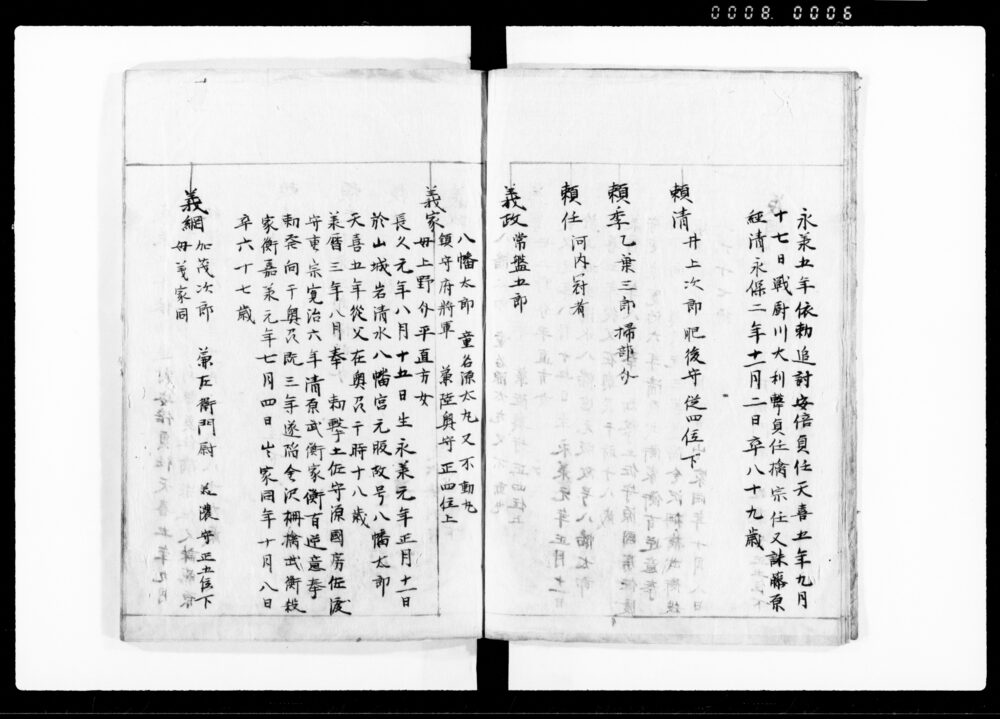 0008 0006
永承五年依勅追討安倍貞任天喜五年九月
十七日戦厨川大利擊貞任擒宗任又誅藤原
経清永保二年十一月二日卒八十九歳
頼清 井上次郎 肥後守 従四位下
頼季 乙葉三郎 掃部介
頼任 河内冠者
義政 常盤五郎
八幡太郎 童名源太丸又不動丸
義家 鎮守府将軍 兼陸奥守 正四位上
母上野介平直方女
長久元年八月十五日生永承元年正月十一日
於山城岩清水八幡宮元服改号八幡太郎
天喜五年従父在奥呂于時十八歳
承暦三年八月奉 勅擊土佐守源國房佐渡
守重宗寛治六年清原武衡家衡有逆意奉
勅発向于奥呂既三年遂陥金沢柵擒武衡殺
家衡嘉承元年七月四日 家同年十月八日
卒六十七歳
義綱 加茂次郎 兼左衛門尉 美濃守正五位下
母義家同